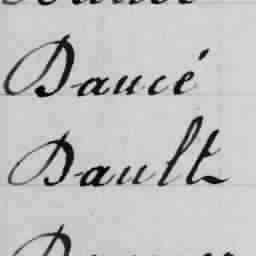 Daucé
Dault